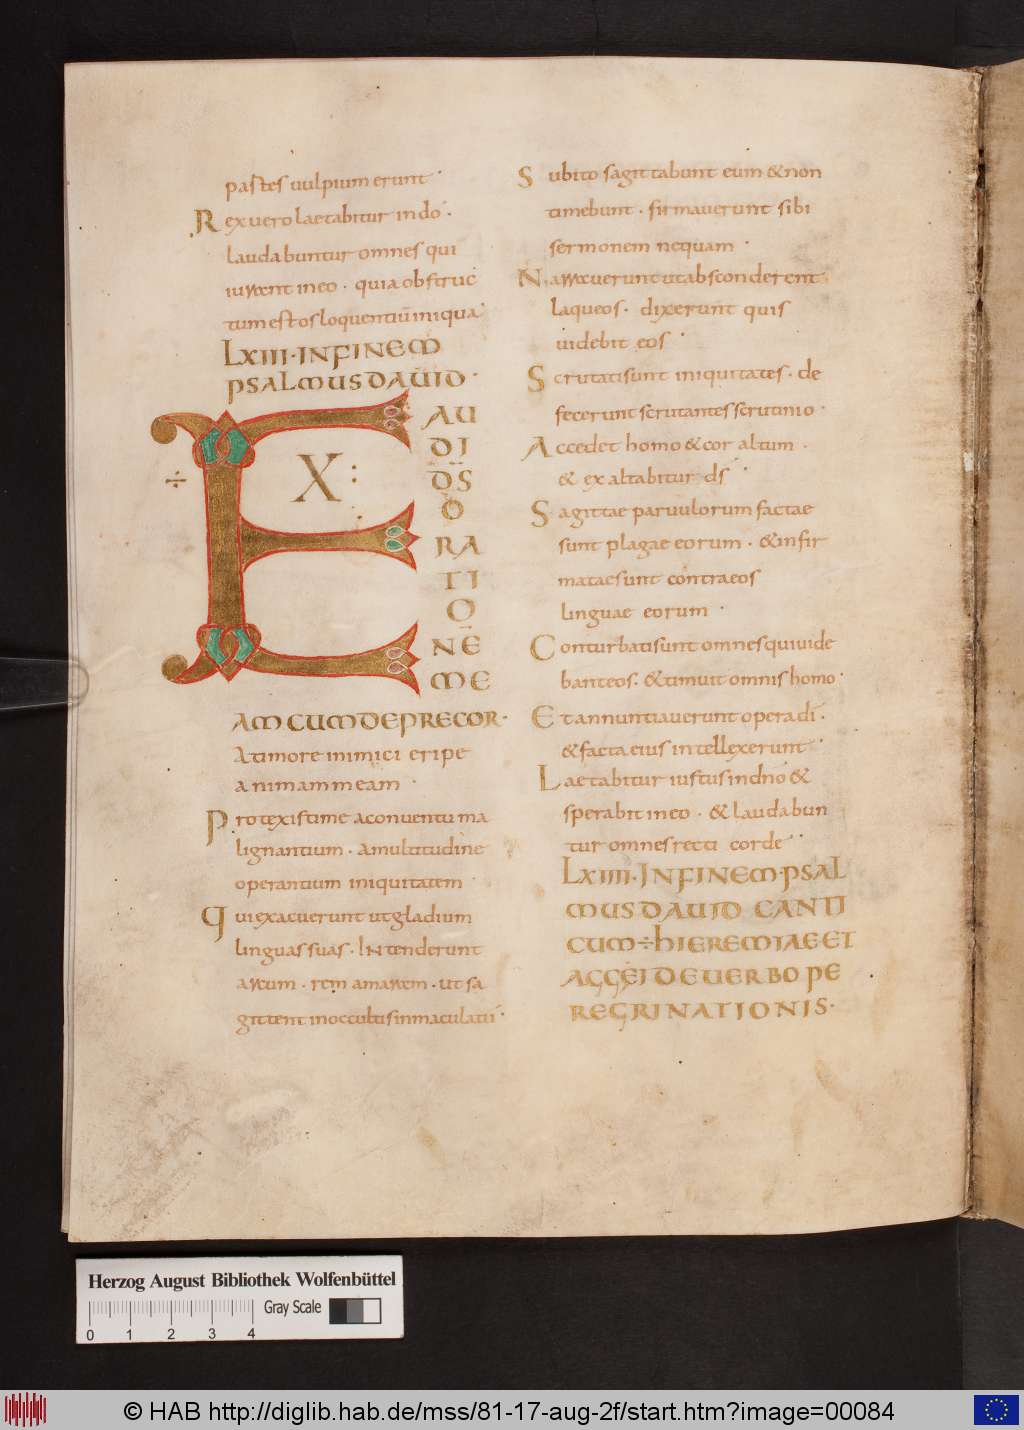 partes uulpium erunt ·
Rex uero laetabitur in dō ·
laudabuntur omnes qui
iurant in eo · quia obstruc
tum est os loquentiū iniqua ·
LXIII · IN FINEM
PSALMUS DAUID ·
÷ EX :
AU
DI
D̄S
O
RA
TI
O
NĒ
ME
AM CUM DEPRECOR ·
A timore inimici eripe
animam meam ·
Protexisti me a conuentu ma
lignantium · a multitudine
operantium iniquitatem ·
Qui exacuerunt ut gladium
linguas suas · INtenderunt
arcum · rem amaram · ut sa
gittent in occultis inmaculatū ·
Subito sagittabunt eum & non
timebunt · firmauerunt sibi
sermonem nequam ·
Narrauerunt ut absconderent
laqueos · dixerunt quis
uidebit eos ·
Scrutati sunt iniquitates · de
fecerunt scrutantes scrutinio ·
Accedet homo & cor altum ·
& exaltabitur d̄s ·
Sagittae paruulorum factae
sunt plagae eorum · & infir
matae sunt contra eos
linguae eorum ·
Conturbati sunt omnes qui uide
bant eos · & timuit omnis homo ·
Et annuntiauerunt opera dī ·
& facta eius intellexerunt ·
Laetabitur iustus in dn̄o &
sperabit in eo · & laudabun
tur omnes recti corde ·
LXIIII · IN FINEM · PSAL
MUS DAUID CANTI
CUM ÷ HIEREMIAE ET
AGGEI DE UERBO PE
REGRINATIONIS ·
Herzog August Bibliothek Wolfenbüttel
Gray Scale
0 1 2 3 4
© HAB http://diglib.hab.de/mss/81-17-aug-2f/start.htm?image=00084